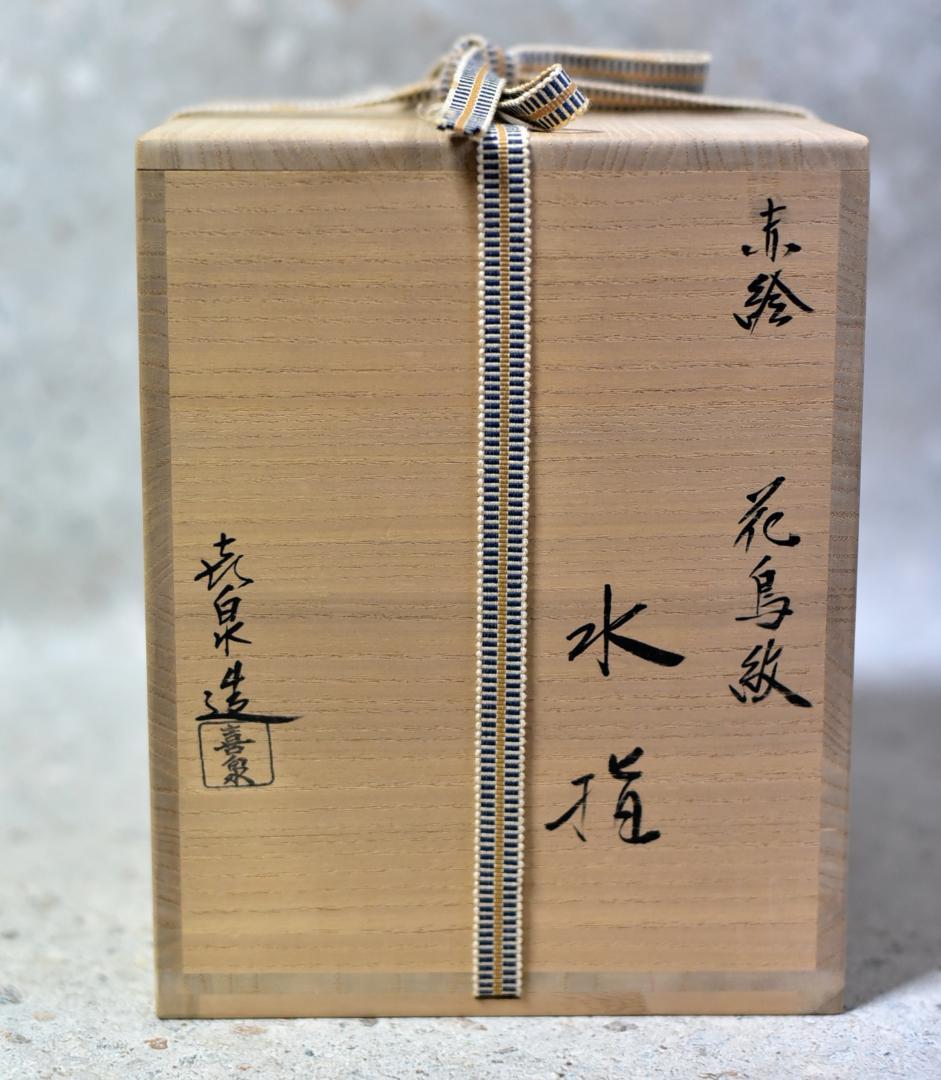 赤絵 花鳥紋
水指
喜泉造
喜泉